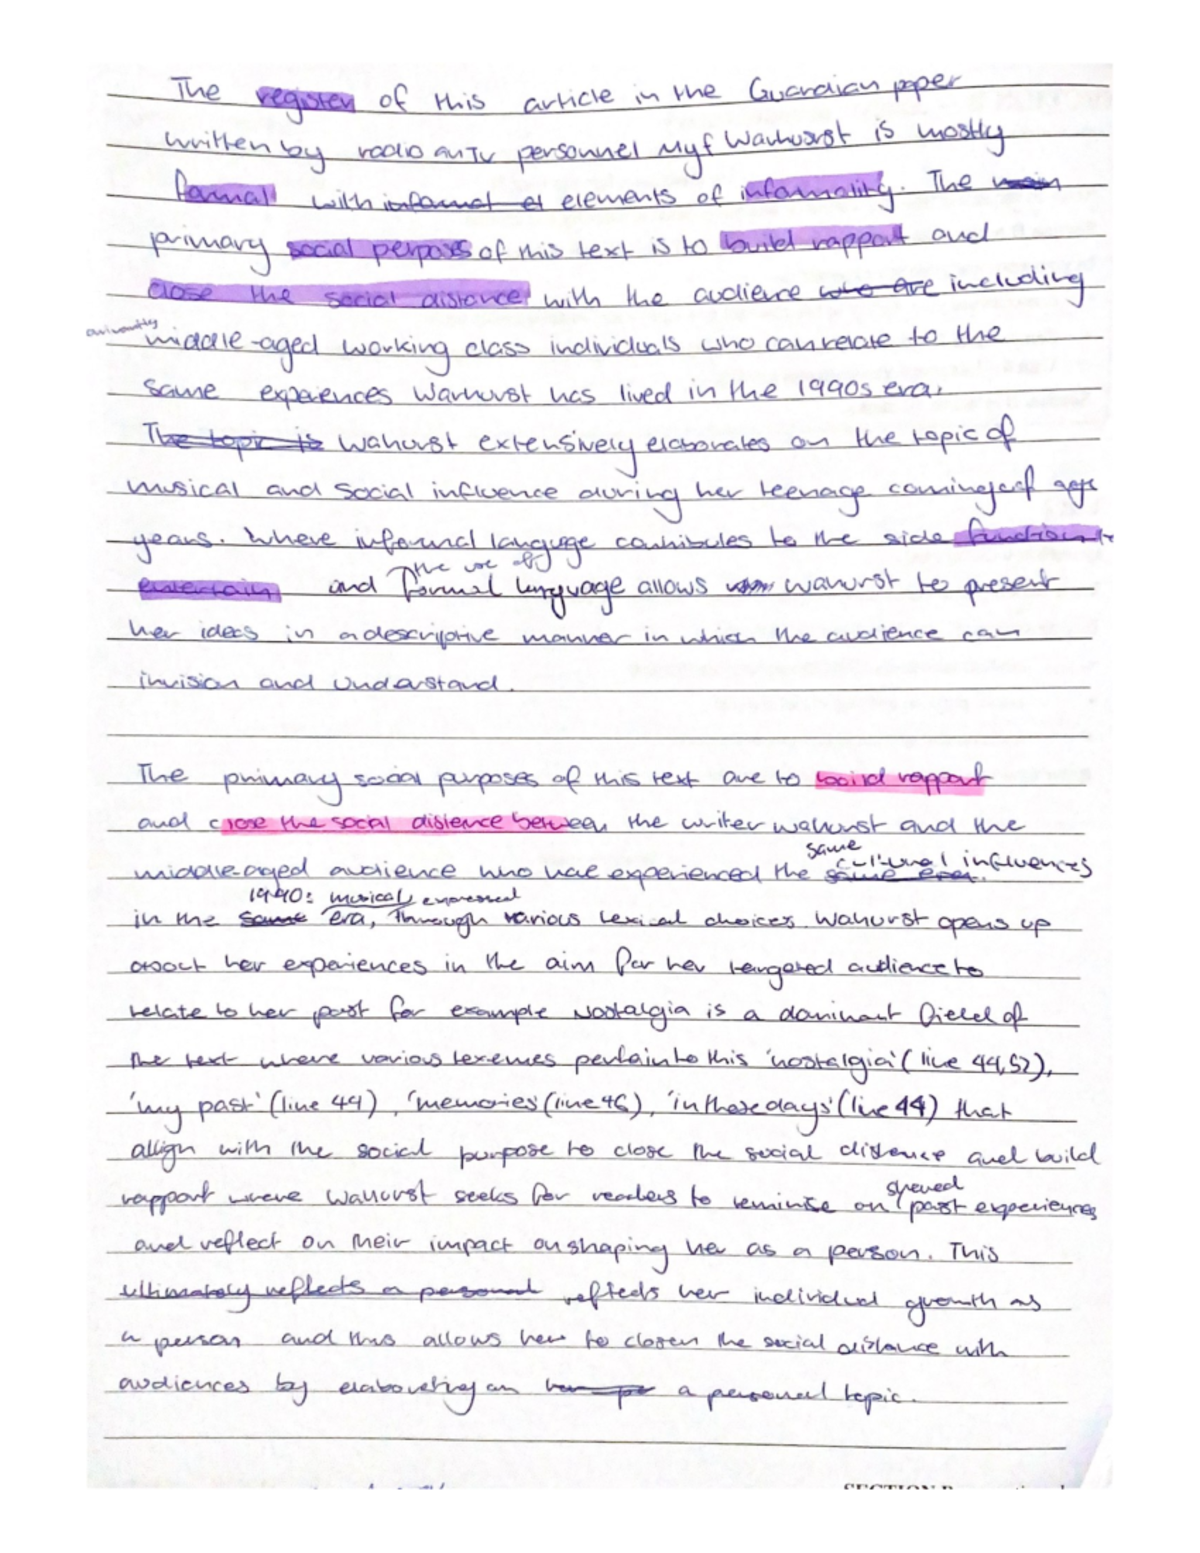 The register of this article in the Guardian paper
written by radio an TV personnel Myf Warhurst is mostly
formal with informal el elements of informality. The main
primary social perposes of this text is to build rapport and
close the social distance with the audience who are including
middle-aged working class individuals who can relate to the
same experiences Warhurst has lived in the 1990s era.
The topic is Wahurst extensively elaborates on the topic of
musical and social influence during her teenage coming of age
years. Where informal language contributes to the side function to
entertain and the use of formal language allows Wahurst to present
her ideas in a descriptive manner in which the audience can
invision and understand.
The primary social purposes of this text are to build rapport
and close the social distence between the writer wahurst and the
middle-aged audience who have experienced the same era. same cultural influences
in the same 1990s musical era, expressed through various lexical choices. Wahurst opens up
about her experiences in the aim for her targered audience to
relate to her past for example Nostalgia is a dominant field of
the text where various lexemes pertain to this 'nostalgia' (line 44,52),
'my past' (line 44), 'memories' (line 46), 'in those days' (line 44) that
allign with the social purpose to close the social distence and build
rapport where Wahurst seeks for readers to reminise on shared past experiences
and reflect on their impact on shaping her as a person. This
ultimately reflects a personal reflects her individual growth as
a person and thus allows her to closen the social distance with
audiences by elaborating on her pe a personal topic.